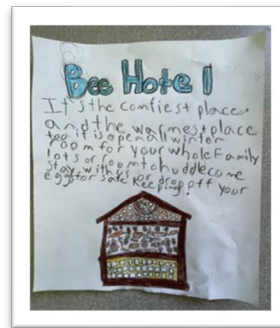 Bee Hotel
It's the comfiest place.
and the warmest place
too it is open all winter
room for your whole Family
lots of room to huddle come
stay with us or drop off your
egg for safe keeping!